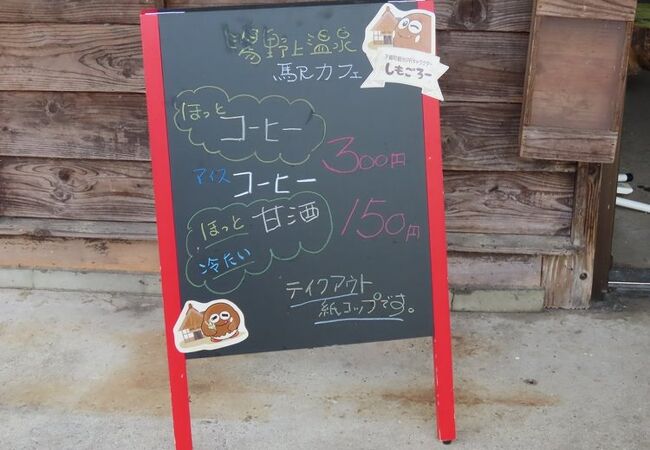 湯野上温泉
駅カフェ
下郷町観光PRキャラクター
しもごろー
ほっと
コーヒー
300円
アイス コーヒー
ほっと 甘酒 150円
冷たい
テイクアウト
紙コップです。